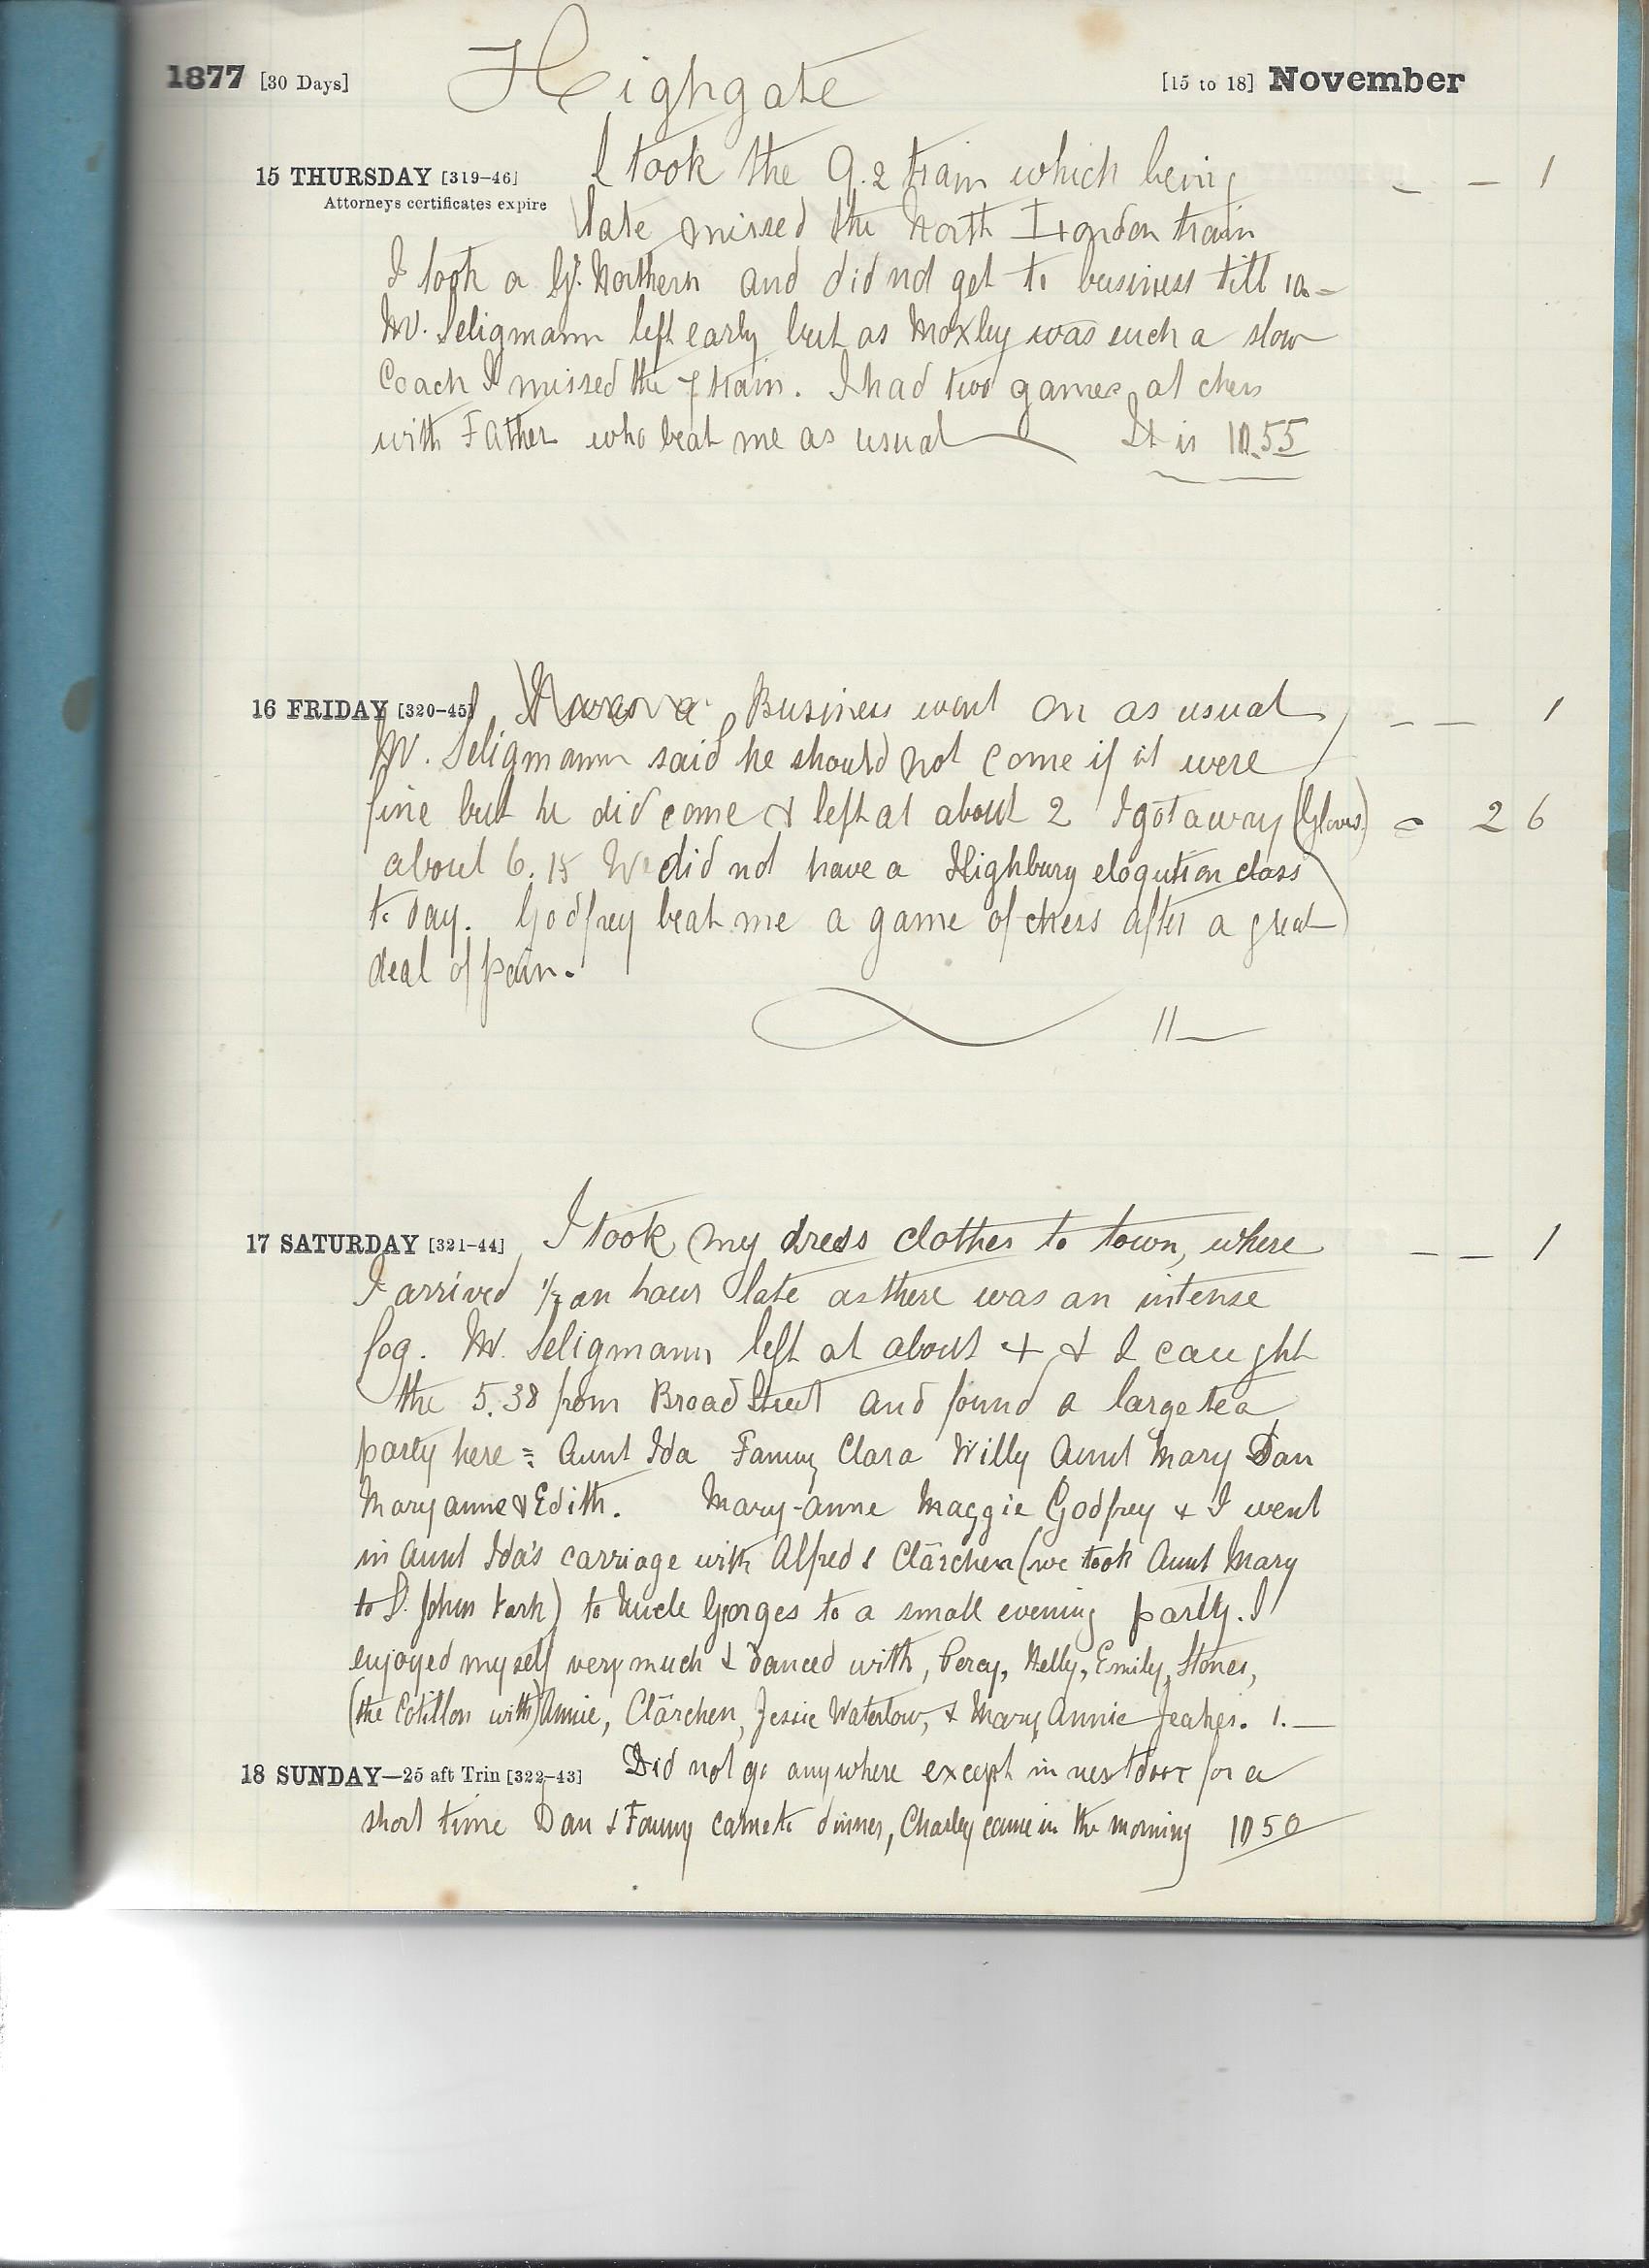 1877 [30 Days] Highgate [15 to 18] November
15 THURSDAY [319-46] I took the 9.2 train which being — — 1
Attorneys certificates expire
late missed the North London train
I took a Gt. Northern and did not get to business till 10 –
Mr. Seligmann left early but as Moxley was such a slow
Coach I missed the 7 train. I had two games at chess
with Father who beat me as usual It is 10.55
16 FRIDAY [320-45] Business went on as usual — — 1
Mr. Seligmann said he should not come if it were
fine but he did come & left at about 2 I got away (Gloves) = 2 6
about 6.15 We did not have a Highbury eloqution class
to day. Godfrey beat me a game of chess after a great
deal of pain.
11 —
17 SATURDAY [321-44] I took my dress clothes to town, where — — 1
I arrived ½ an hour late as there was an intense
fog. Mr. Seligmann left at about 4 & I caught
the 5.38 from Broad Street and found a large tea
party here = Aunt Ida Fanny Clara Willy Aunt Mary Dan
Mary anne & Edith. Mary-anne Maggie Godfrey & I went
in Aunt Ida's carriage with Alfred & Clärchen (we took Aunt Mary
to St. Johns Park) to Uncle Georges to a small evening party. I
enjoyed myself very much & danced with, Percy, Nelly, Emily, Stones,
(the Cotillon with) Annie, Clärchen, Jessie Waterlow, & Mary Annie Jeakes. 1. —
18 SUNDAY—25 aft Trin [322-43] Did not go anywhere except in next door for a
short time Dan & Fanny came to dinner, Charley came in the morning 10 50